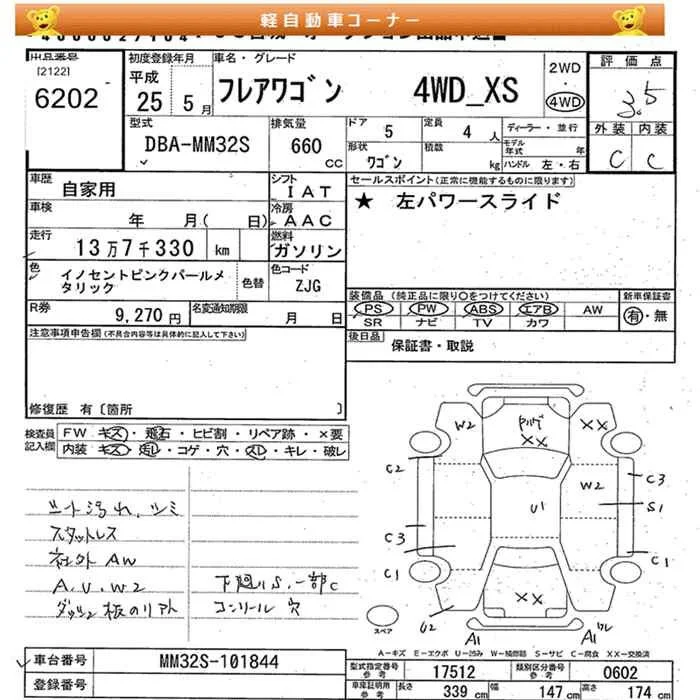 軽自動車コーナー
出品番号
[2122]
6202
初度登録年月
平成
25 5 月
車名・グレード
フレアワゴン 4WD_XS
2WD
・
4WD
評価点
3.5
外装 内装
C C
型式
DBA-MM32S
排気量
660 CC
ドア 5
定員 4 人
形状 ワゴン
積数 kg
ディーラー・並行
モデル年式 年
ハンドル 左・右
車歴 自家用
シフト IAT
車検 年 月( 日)
冷房 AAC
走行 13万7千330 km
燃料 ガソリン
色 イノセントピンクパールメタリック
色替
色コード ZJG
R券 9,270 円
名変通知期限 月 日
セールスポイント(正常に機能するものに限ります)
★ 左パワースライド
装備品(純正品に限り○をつけてください)
PS PW ABS エアB AW
SR ナビ TV カワ
新車保証書
有・無
後日品 保証書・取説
注意事項申告欄(不具合内容等は具体的に記入して下さい)
修復歴 有〔箇所 〕
検査員記入欄
FW キズ・飛石・ヒビ割・リペア跡・×要
内装 キズ・汚レ・コゲ・穴・スレ・キレ・破レ
シート汚れ、シミ
スタットレス
社外AW
A.U.W2
下廻りS.一部C
W2
XX
XX
W2
U1
C2
C3
C3
S1
C1
C1
XX
U2
A1
A1
スペア
A-キズ E-エクボ U-凹み W-補修跡 S-サビ C-腐食 XX-交換済
車台番号 MM32S-101844
登録番号
型式指定番号参考 17512
類別区分番号参考 0602
車庫証明用参考 長さ 339 cm 幅 147 cm 高さ 174 cm